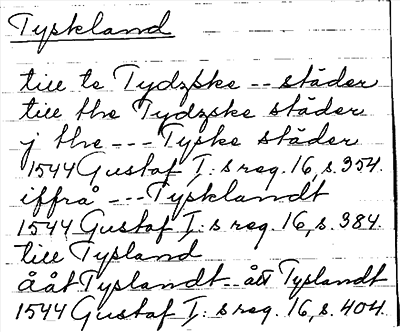 Tyskland
till te Tydzske -- städer
till the Tydzske städer
j the --- Tyske städer
1544 Gustaf I:s reg. 16, s. 354.
iffrå --- Tysklandt
1544 Gustaf I:s reg. 16, s. 384.
till Tysland
ååt Tyslandt -- ått Tyslandt
1544 Gustaf I:s reg. 16, s. 404.